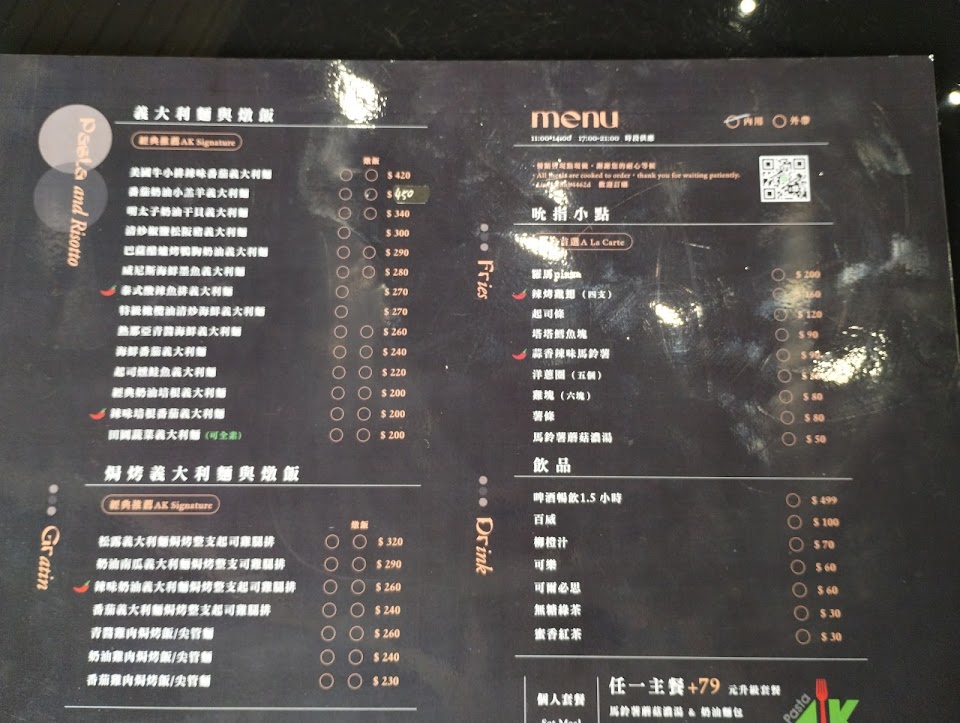 義大利麵與燉飯
經典推薦AK Signature
燉飯
Pasta and Risotto
美國牛小排辣味番茄義大利麵 $ 420
番茄奶油小羔羊義大利麵 $ 450
明太子奶油干貝義大利麵 $ 340
清炒椒鹽松阪豬義大利麵 $ 300
巴薩醋爐烤鴨胸奶油義大利麵 $ 290
威尼斯海鮮墨魚義大利麵 $ 280
泰式酸辣魚排義大利麵 $ 270
特級橄欖油清炒海鮮義大利麵 $ 270
熱那亞青醬海鮮義大利麵 $ 260
海鮮番茄義大利麵 $ 240
起司燻鮭魚義大利麵 $ 220
經典奶油培根義大利麵 $ 200
辣味培根番茄義大利麵 $ 200
田園蔬菜義大利麵 (可全素) $ 200
焗烤義大利麵與燉飯
經典推薦AK Signature
燉飯
Gratin
松露義大利麵焗烤整支起司雞腿排 $ 320
奶油南瓜義大利麵焗烤整支司雞腿排 $ 290
辣味奶油義大利麵焗烤整支起司雞腿排 $ 260
番茄義大利麵焗烤整支起司雞腿排 $ 240
青醬雞肉焗烤飯/尖管麵 $ 260
奶油雞肉焗烤飯/尖管麵 $ 240
番茄雞肉焗烤飯/尖管麵 $ 230
menu
內用 外帶
11:00-14:00 17:00-21:00 時段供應
餐點皆現點現做,謝謝您的耐心等候
All meals are cooked to order,thank you for waiting patiently.
歡迎訂購
吮指小點
A La Carte
Fries
羅馬pizza $ 200
辣烤雞翅 (四支) 160
起司條 $ 120
塔塔鱈魚塊 $ 90
蒜香辣味馬鈴薯 $ 90
洋蔥圈 (五個) $
雞塊 (六塊) $ 80
薯條 $ 80
馬鈴薯蘑菇濃湯 $ 50
飲品
Drink
啤酒暢飲1.5 小時 $ 499
百威 $ 100
柳橙汁 $ 70
可樂 $ 60
可爾必思 $ 60
無糖綠茶 $ 30
蜜香紅茶 $ 30
個人套餐
Set Meal
任一主餐+79 元升級套餐
馬鈴薯蘑菇濃湯 & 奶油麵包
Pasta
AK